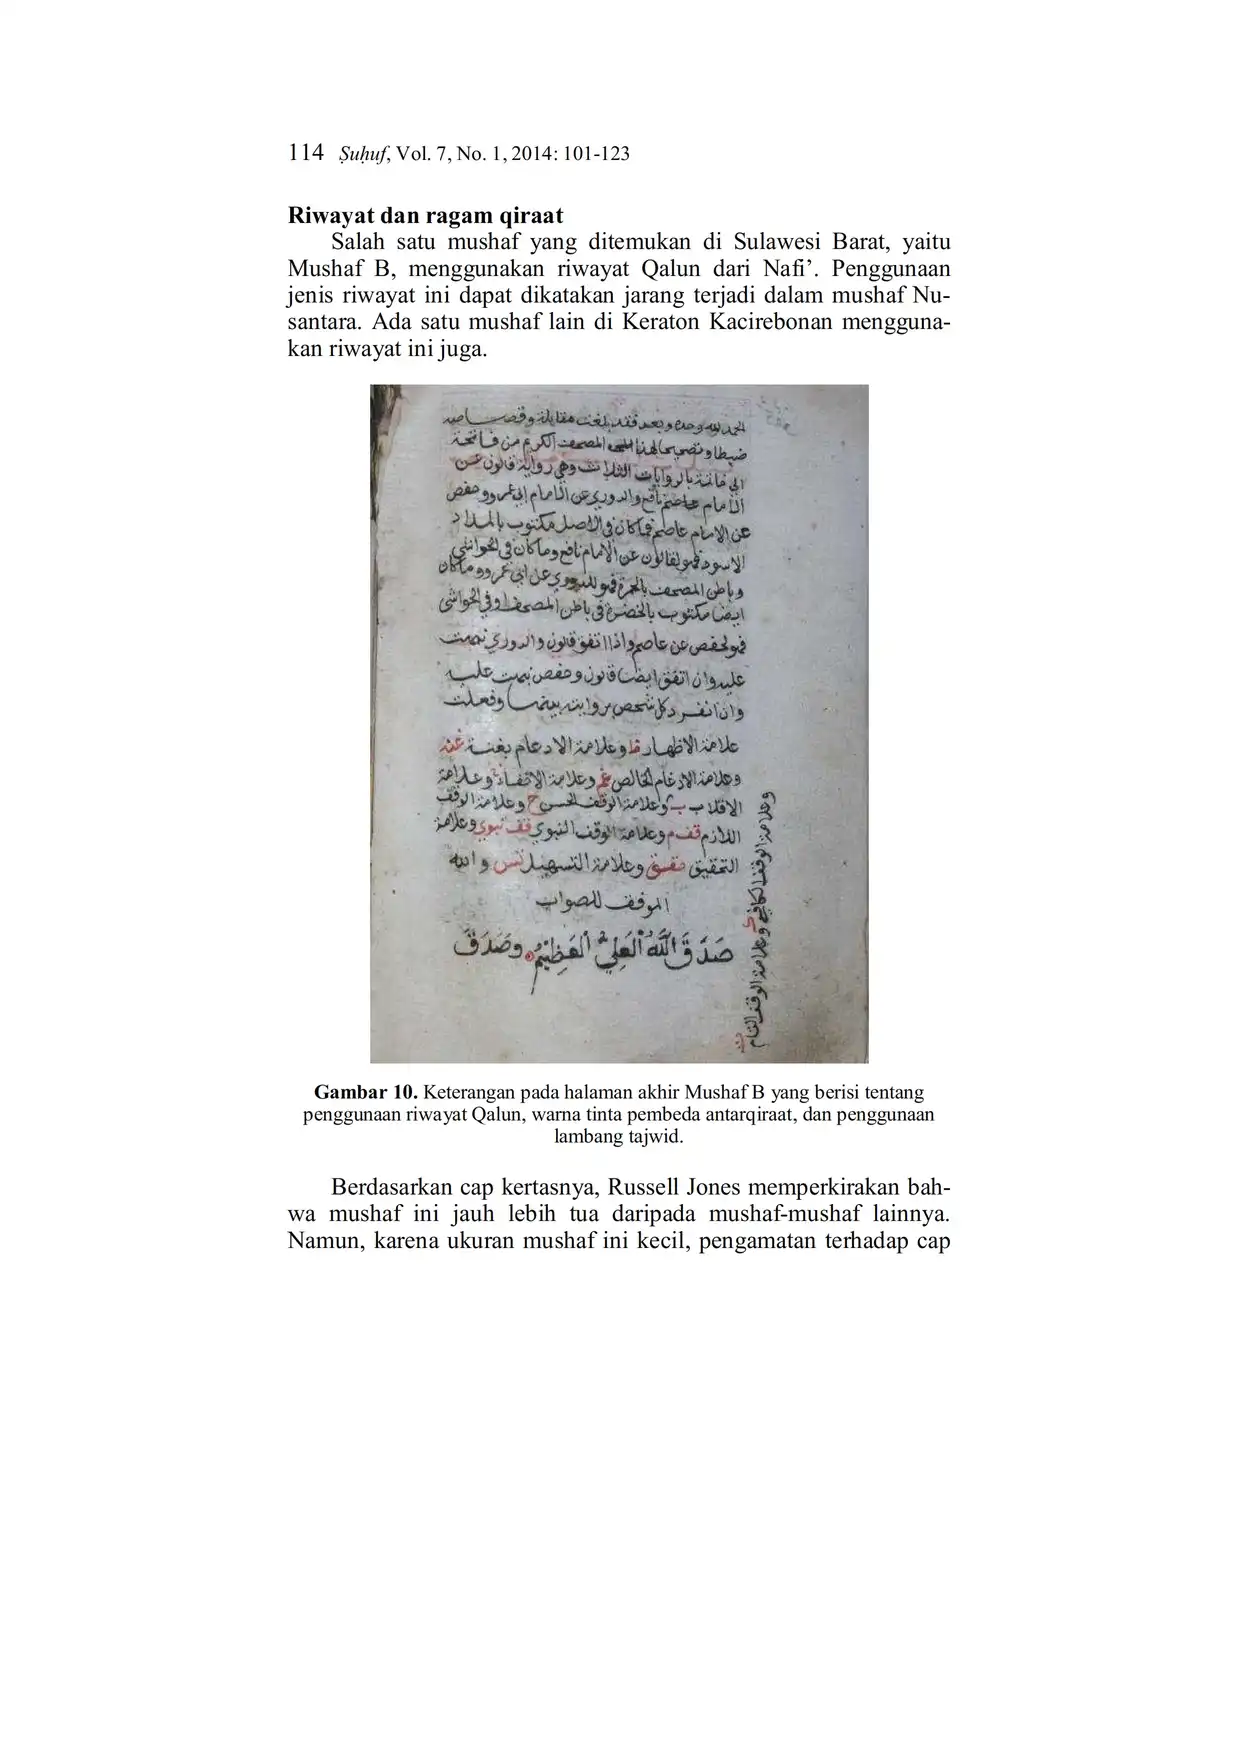 114 Ṣuḥuf, Vol. 7, No. 1, 2014: 101-123
Riwayat dan ragam qiraat
Salah satu mushaf yang ditemukan di Sulawesi Barat, yaitu
Mushaf B, menggunakan riwayat Qalun dari Nafi’. Penggunaan
jenis riwayat ini dapat dikatakan jarang terjadi dalam mushaf Nu-
santara. Ada satu mushaf lain di Keraton Kacirebonan mengguna-
kan riwayat ini juga.
الحمد لله وحده وبعد فقد بلغت مقابلة
ضبطا وتصحيحا لهذا المصحف الكريم من فاتحة
الى خاتمة بالروايات الثلاث وهي رواية قالون عن
الامام نافع والدوري عن الامام ابي عمرو وحفص
عن الامام عاصم فما كان في الاصل مكتوب بالمداد
الاسود فهو لقالون عن الامام نافع وما كان في الحواشي
وباطن المصحف بالحمرة فهو للدوري عن ابي عمرو وما كان
ايضا مكتوب بالخضرة في باطن المصحف او في الحواشي
فهو لحفص عن عاصم واذا اتفق قالون والدوري نبهت
عليه وان اتفق ايضا قالون وحفص نبهت عليه
وان انفرد كل شخص بروايته وفعلت
علامة الاظهار وعلامة الادغام بغنة غنه
وعلامة الادغام الخالص وعلامة الاخفاء وعلامة
الاقلاب ب وعلامة الوقف الحسن ح وعلامة الوقف
اللازم قف م وعلامة الوقف النبوي قف نبوي وعلامة
التحقيق وعلامة التسهيل والله
الموفق للصواب
صَدَقَ اللَّهُ الْعَلِيُّ الْعَظِيْمُ وَصَدَقَ
وعلامة الوقف الكافي وعلامة الوقف التام
Gambar 10. Keterangan pada halaman akhir Mushaf B yang berisi tentang
penggunaan riwayat Qalun, warna tinta pembeda antarqiraat, dan penggunaan
lambang tajwid.
Berdasarkan cap kertasnya, Russell Jones memperkirakan bah-
wa mushaf ini jauh lebih tua daripada mushaf-mushaf lainnya.
Namun, karena ukuran mushaf ini kecil, pengamatan terhadap cap